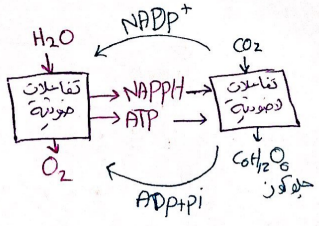 NADP+
H2O
CO2
تفاعلات
ضوئية
NAPPH
ATP
تفاعلات
لاضوئية
O2
C6H12O6
جلوكوز
ADP+pi